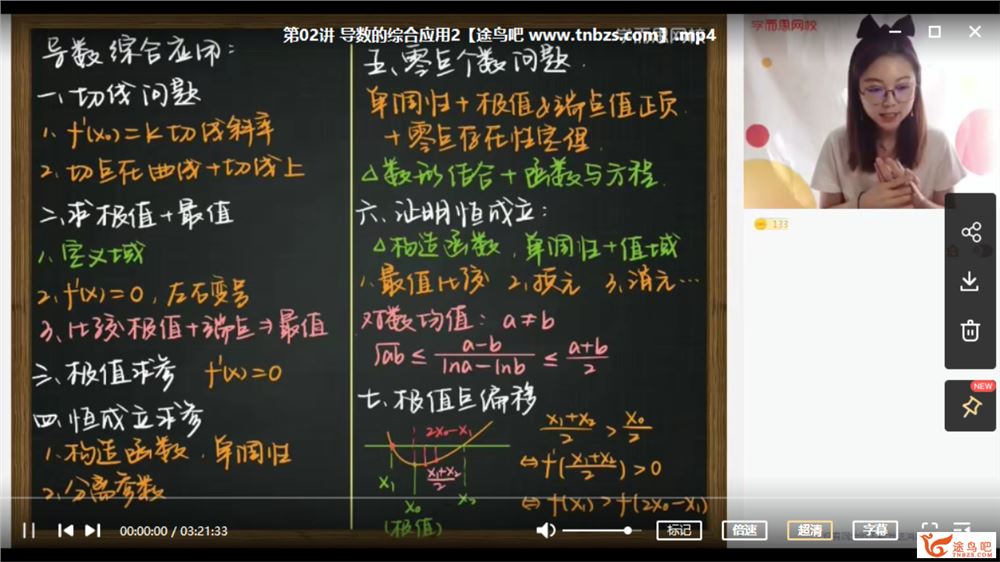 第02讲 导数的综合应用2【途鸟吧 www.tnbzs.com】.mp4
学而思网校
导数综合应用：
一、切线问题
1. f'(x₀)=k 切线斜率
2. 切点在曲线+切线上
二、求极值+最值
1. 定义域
2. f'(x)=0，左右变号
3. 比较极值+端点⇒最值
三、极值求参 f'(x)=0
四、恒成立求参
1. 构造函数，单调性
2. 分离参数
五、零点个数问题.
单调性+极值&端点值正负
+零点存在性定理.
△数形结合+函数与方程.
六、证明恒成立：
△构造函数，单调性+值域
1. 最值比较 2. 换元 3. 消元…
对数均值：a≠b
√ab ≤ (a-b)/(lna-lnb) ≤ (a+b)/2
七、极值点偏移
2x₀-x₁
x₁
(x₁+x₂)/2
x₂
x₀
(极值)
(x₁+x₂)/2 > x₀/2
⇔ f'((x₁+x₂)/2)>0
⇔ f(x₁)>f(2x₀-x₁)
学而思网校
133
NEW
00:00:00 / 03:21:33
标记
倍速
超清
字幕
途鸟吧
TNBZS.COM